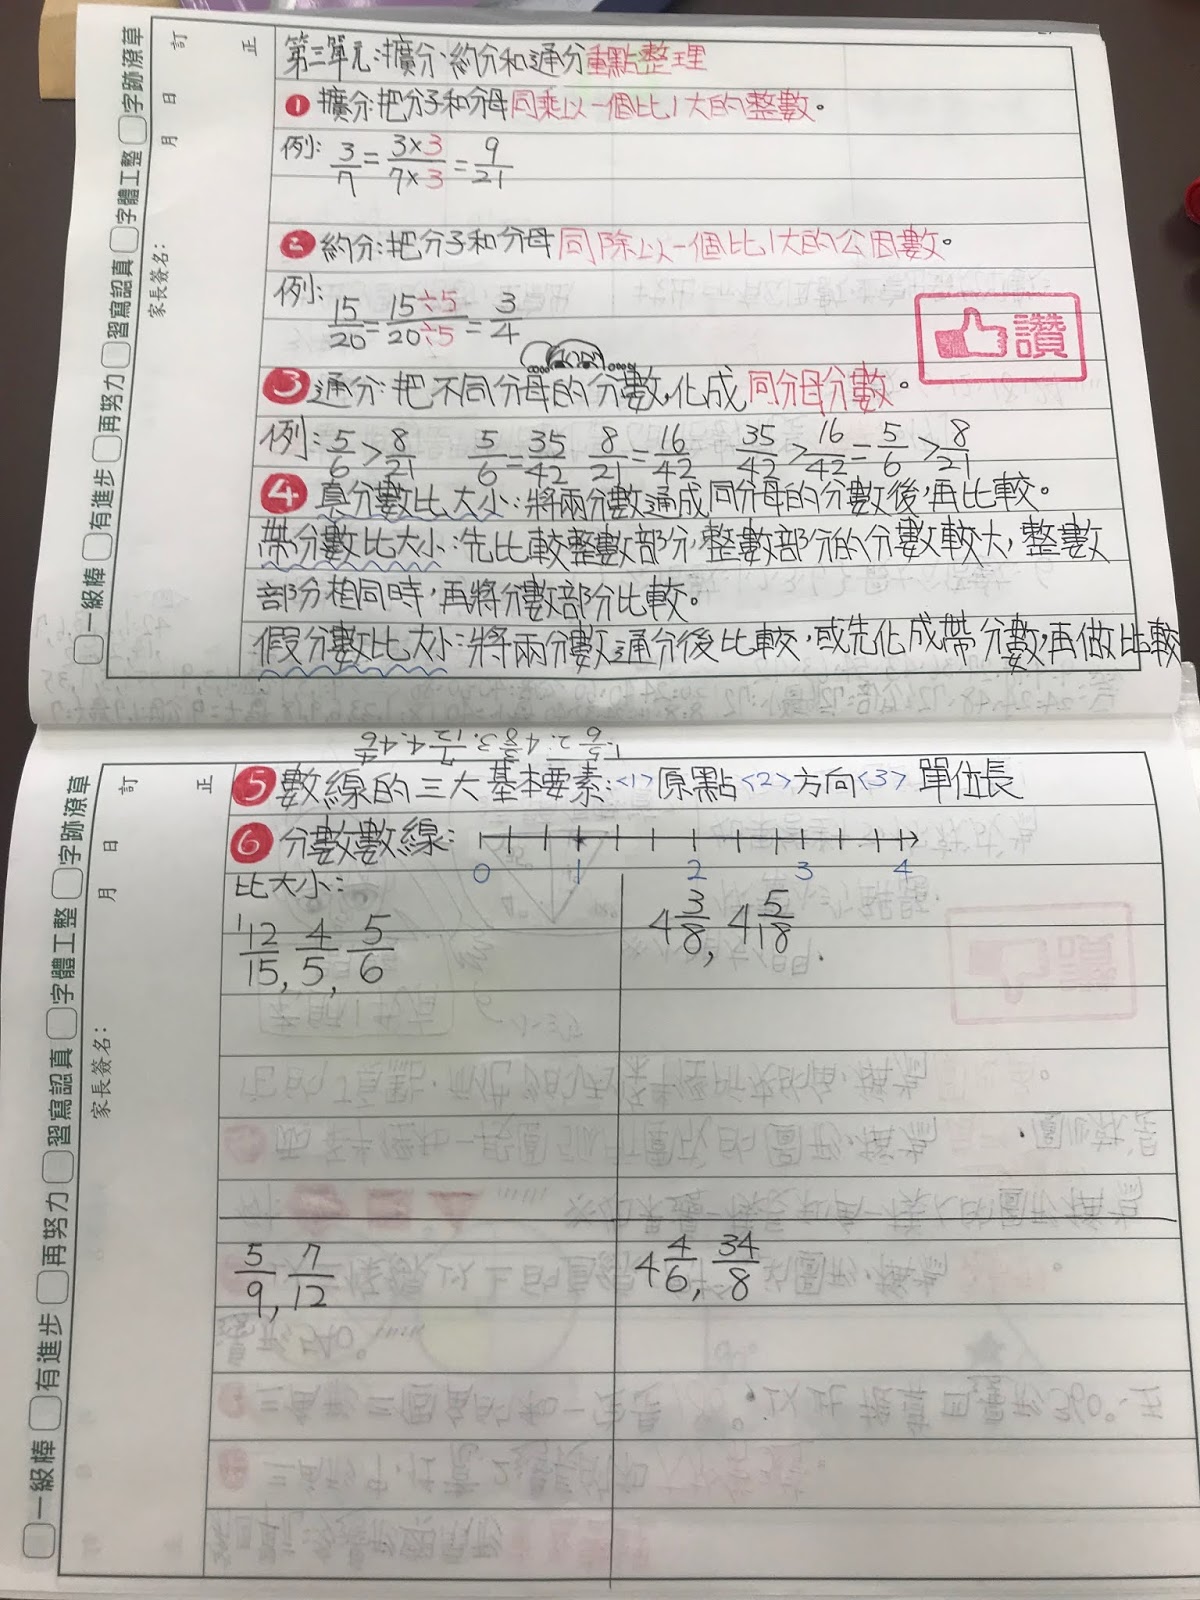 第三單元:擴分、約分和通分重點整理
1 擴分:把分子和分母同乘以一個比1大的整數。
例: 3/7 = 3×3/7×3 = 9/21
2 約分:把分子和分母同除以一個比1大的公因數。
例: 15/20 = 15÷5/20÷5 = 3/4
讚
3 通分:把不同分母的分數,化成同分母分數。
例: 5/6 > 8/21 5/6 = 35/42 8/21 = 16/42 35/42 > 16/42 = 5/6 > 8/21
4 真分數比大小:將兩分數通成同分母的分數後,再比較。
帶分數比大小:先比較整數部分,整數部分的分數較大,整數
部分相同時,再將分數部分比較。
假分數比大小:將兩分數通分後比較,或先化成帶分數,再做比較
訂正
月 日
家長簽名:
一級棒 有進步 再努力 習寫認真 字體工整 字跡潦草
1. 5/6 2. 4 3/8 3. 7/12 4. 4 4/6
5 數線的三大基本要素:<1>原點<2>方向<3>單位長
6 分數數線:
0 1 2 3 4
比大小:
1 12/15, 4/5, 5/6
4 3/8, 4 5/18
5/9, 7/12
4 4/6, 34/8
訂正
月 日
家長簽名:
一級棒 有進步 再努力 習寫認真 字體工整 字跡潦草